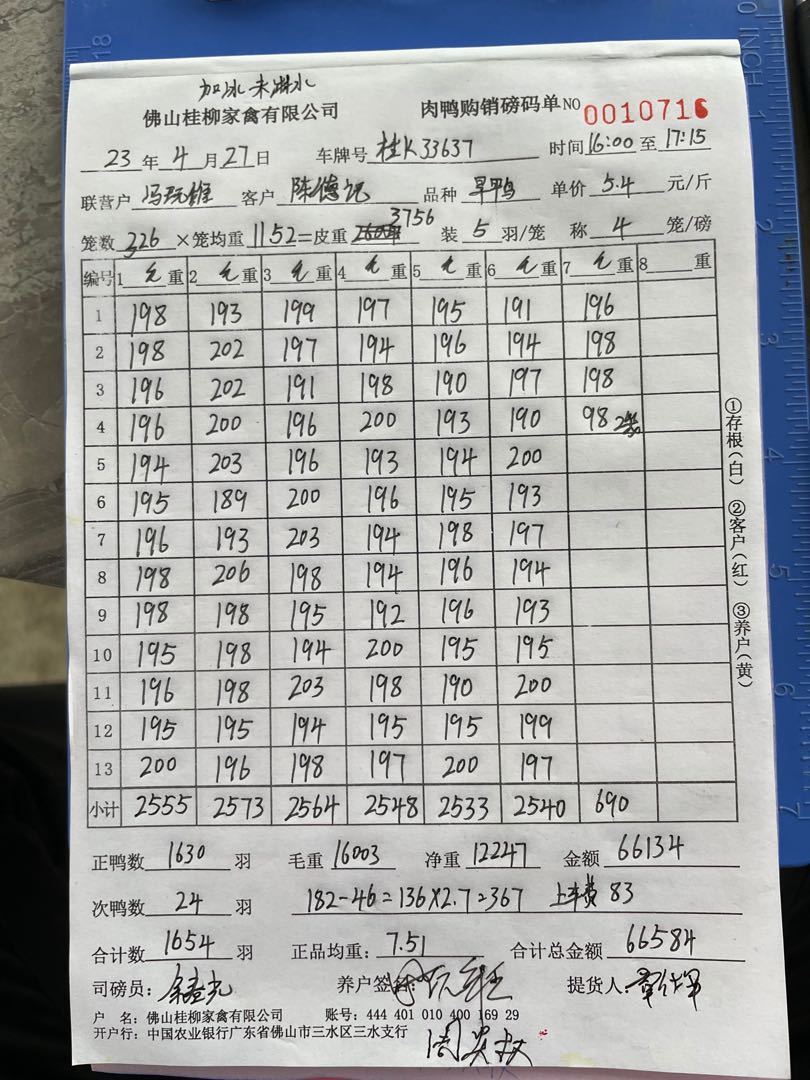 加冰未淋水
佛山桂柳家禽有限公司 肉鸭购销磅码单 NO 0010716
23 年 4 月 27 日 车牌号 桂K33637 时间 16:00 至 17:15
联营户 冯玩维 客户 陈德记 品种 旱鸭 单价 5.4 元/斤
笼数 326 ×笼均重 1152 =皮重 3756 装 5 羽/笼 称 4 笼/磅
编号 1 毛 重 2 毛 重 3 毛 重 4 毛 重 5 毛 重 6 毛 重 7 毛 重 8 重
1 198 193 199 197 195 191 196
2 198 202 197 194 196 194 198
3 196 202 191 198 190 197 198
4 196 200 196 200 193 190 98 2笼
5 194 203 196 193 194 200
6 195 189 200 196 195 193
7 196 193 203 194 198 197
8 198 206 198 194 196 194
9 198 198 195 192 196 193
10 195 198 194 200 195 195
11 196 198 203 198 190 200
12 195 195 194 195 195 199
13 200 196 198 197 200 197
小计 2555 2573 2564 2548 2533 2540 690
正鸭数 1630 羽 毛重 16003 净重 12247 金额 66134
次鸭数 24 羽 182-46=136×2.7=367 上车费 83
合计数 1654 羽 正品均重: 7.51 合计总金额 66584
司磅员: 养户签名: 提货人:
户 名: 佛山桂柳家禽有限公司 账号: 444 401 010 400 169 29
开户行: 中国农业银行广东省佛山市三水区三水支行
①存根(白) ②客户(红) ③养户(黄)
18
0 INCH
1
2
3
4
5
6
7